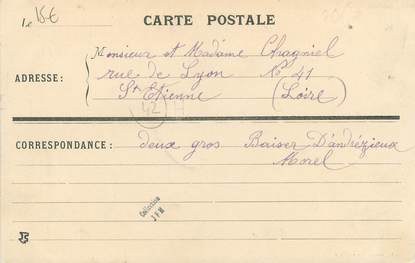 Le 15€
CARTE POSTALE
Monsieur et Madame Chagniel
ADRESSE : rue de Lyon No 41
St Etienne (Loire)
42
CORRESPONDANCE : deux gros Baiser D'andrézieux
Morel
Collection
JPM